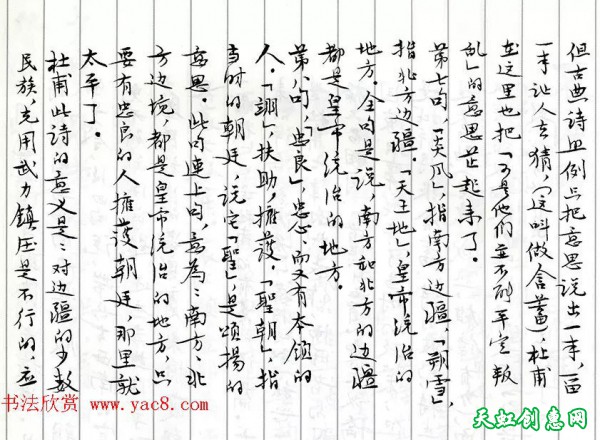 但古典诗照例只把意思说出一半,留
一半让人去猜,(这叫做含蓄),杜甫
在这里也把「可是他们并不能平定叛
乱」的意思藏起来了。
第七句,「炎风」指南方边疆,「朔雪」,
指北方边疆。「天王地」,皇帝统治的
地方。全句是说,南方和北方的边疆
都是皇帝统治的地方。
第八句,「忠良」,忠心、而又有本领的
人。「翊」,扶助,擁護。「聖朝」,指
当时的朝廷,说它「聖」,是颂扬的
意思。此句连上句,意为:南方、北
方边境,都是皇帝统治的地方,只
要有忠良的人擁護朝廷,那里就
太平了。
杜甫此诗的意义是:对边疆的少数
民族,光用武力镇压是不行的,应
书法欣赏 www.yac8.com
天虹创意网